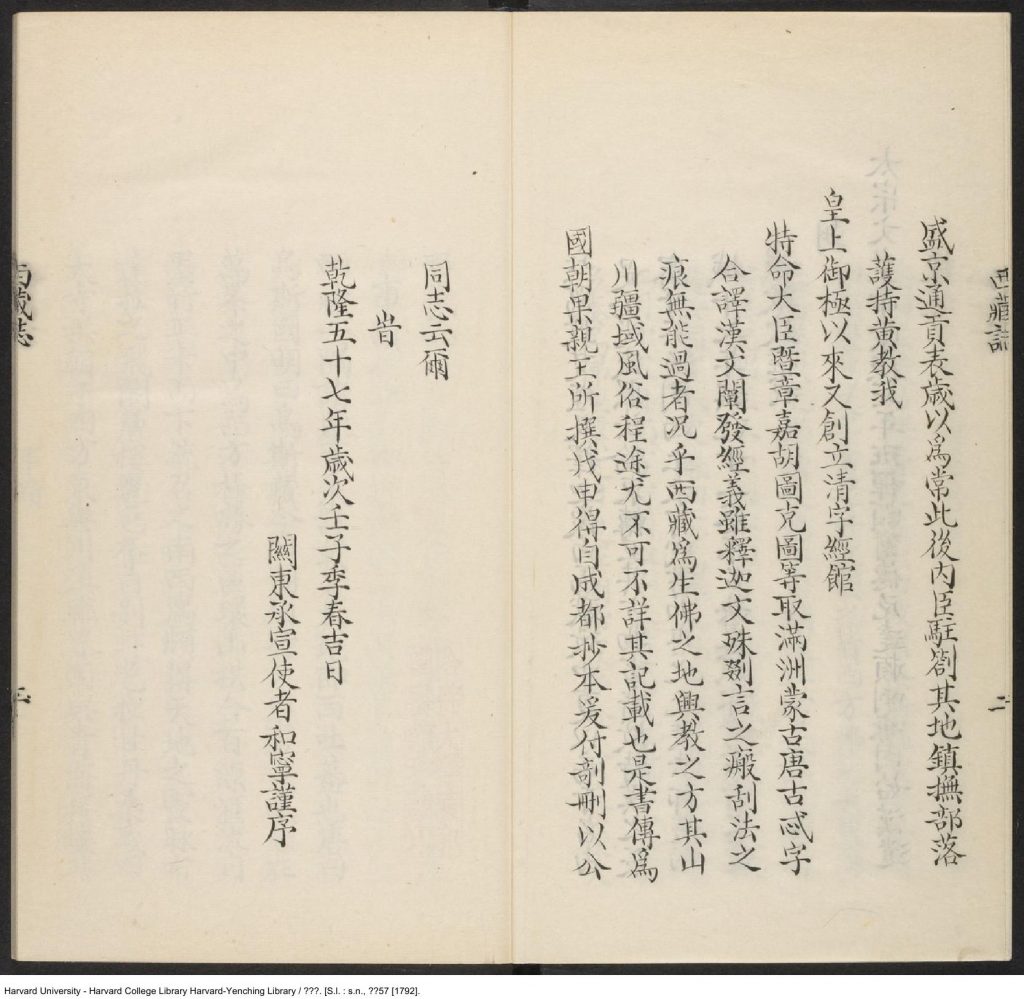 西藏志
二
盛京通貢表歲以爲常此後内臣駐劄其地鎮撫部落
護持黄教我
皇上御極以來又創立清字經館
特命大臣暨章嘉胡圖克圖等取滿洲蒙古唐古忒字
合譯漢文闡發經義雖釋迦文殊剳言之瘢刮法之
痕無能過者况乎西藏爲生佛之地興教之方其山
川疆域風俗程途尤不可不詳其記載也是書傳爲
國朝果親王所撰戊申得自成都抄本爰付剞刪以公
同志云爾
旹
乾隆五十七年歲次壬子季春吉日
關東承宣使者和寧謹序
西藏志
Harvard University - Harvard College Library Harvard-Yenching Library / ???. [S.l. : s.n., ??57 [1792].